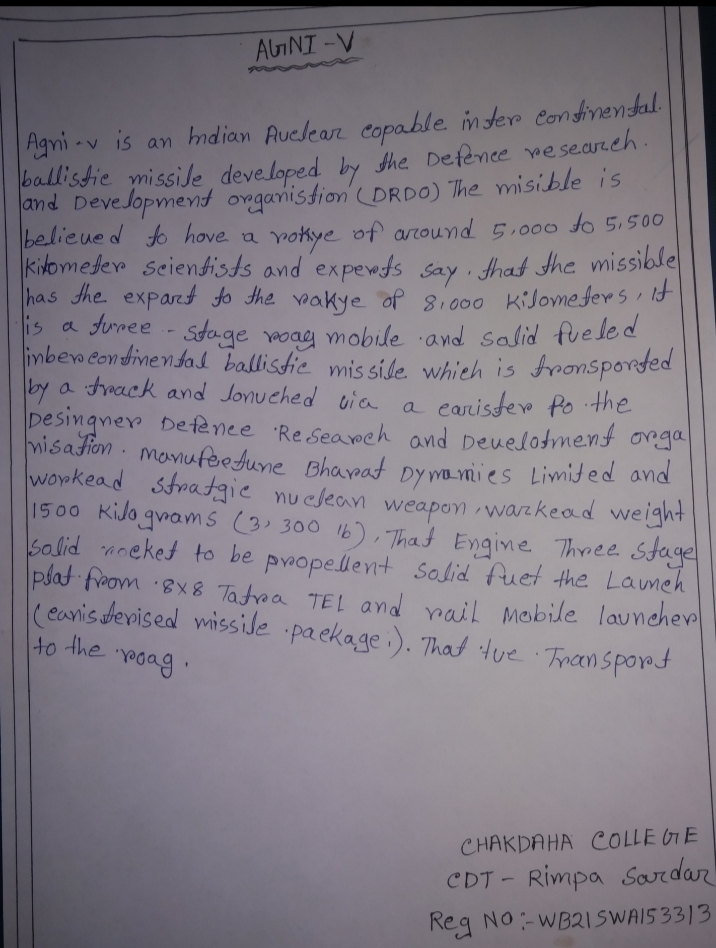 AGNI-V
Agni-v is an Indian Auclear copable inter continental.
ballistic missile developed by the Defence research.
and Development organistion (DRDO) The misible is
believed to hove a rokye of around 5,000 to 5,500
Kilometer scientists and experts say. that the missible
has the expart to the rakye of 8,000 Kilometers, It
is a turee - stage roag mobile and salid fueled
inbercontinental ballistic missile which is tronsported
by a track and lonuched via a carister Po the
Desingner Defence Research and Develotment orga
nisation. Manufectune Bharat Dynamics Limited and
workead stratgic nuclean weapon, warkead weight
1500 Kilograms (3,300 lb), That Engine Three stage
solid rocket to be propellent solid fuet the Launch
plat from 8x8 Tatra TEL and rail Mobile launcher
(canisterised missile package;). That tue Transport
to the roag.
CHAKDAHA COLLEGE
CDT - Rimpa Sardar
Reg NO:- WB21SWA153313